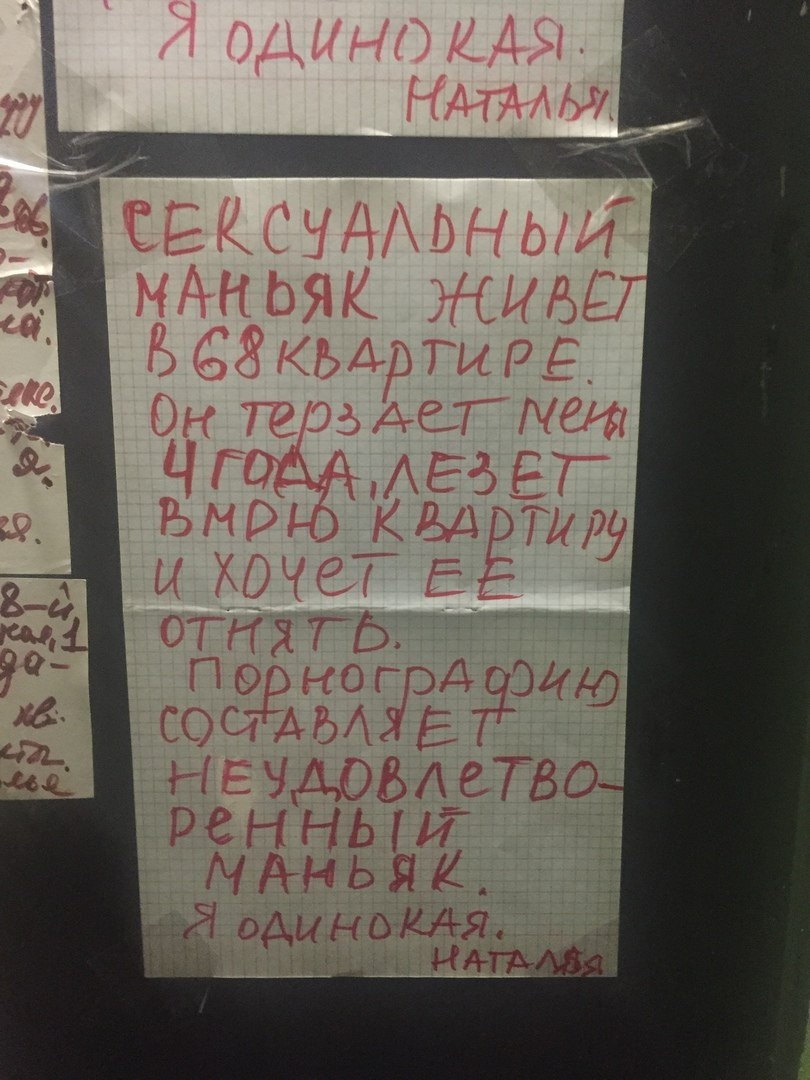 Я ОДИНОКАЯ.
НАТАЛЬЯ.
СЕКСУАЛЬНЫЙ
МАНЬЯК ЖИВЕТ
В 68 КВАРТИРЕ.
ОН ТЕРЗАЕТ МЕНЯ
4 ГОДА, ЛЕЗЕТ
В МОЮ КВАРТИРУ
И ХОЧЕТ ЕЕ
ОТНЯТЬ.
ПОРНОГРАФИЮ
СОСТАВЛЯЕТ
НЕУДОВЛЕТВО-
РЕННЫЙ
МАНЬЯК.
Я ОДИНОКАЯ.
НАТАЛЬЯ
8-й
1
да-
кв.